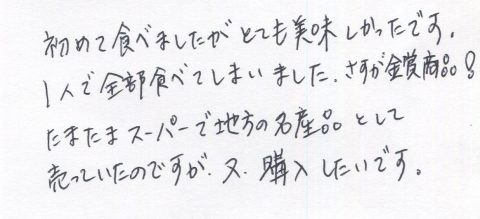 初めて食べましたがとても美味しかったです。
1人で全部食べてしまいました。さすが金賞商品!
たまたまスーパーで地方の名産品として
売っていたのですが、又、購入したいです。